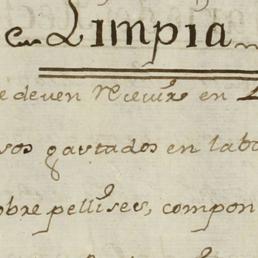 Limpia
e deven recevir en
sos gastados en lab
obre pellises, compon